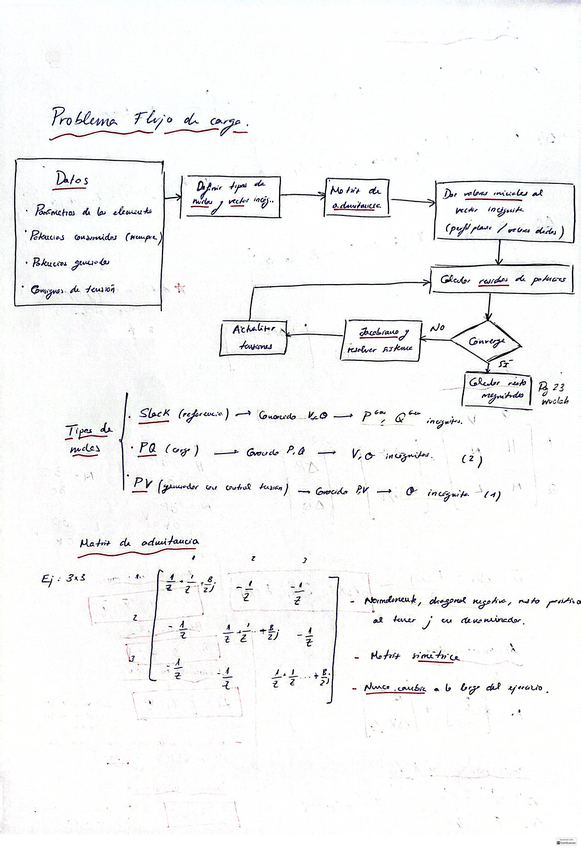 Problema Flujo de carga.
Datos
· Parámetros de los elementos
· Potencias consumidas (siempre)
· Potencias generadas
· Consignas de tensión
Definir tipos de
nudos y vector incóg..
Matriz de
admitancia
Dar valores iniciales al
vector incógnita
(perfil plano / valores dados)
Calcular residuos de potencias
Converge
No
SI
Jacobiano y
resolver sistema
Actualizar
tensiones
Calcular resto
magnitudes
Pg 23
Tipos de
nudos
· Slack (referencia) → Conocido V,θ → Pᵍᵉⁿ, Qᵍᵉⁿ incógnitas.
· PQ (carga) → Conocido P,Q → V,θ incógnitas. (2)
· PV (generador con control tensión) → Conocido P,V → θ incógnita (1)
Matriz de admitancia
Ej: 3x3
1 2 3
1 1/Z + 1/Z + B/2 j - 1/Z - 1/Z
2 - 1/Z 1/Z + 1/Z ... + B/2 j - 1/Z
3 - 1/Z - 1/Z 1/Z + 1/Z ... + B/2 j
- Normalmente, diagonal negativa, resto positiva
al tener j en denominador.
- Matriz simétrica
- Nunca cambia a lo largo del ejercicio.